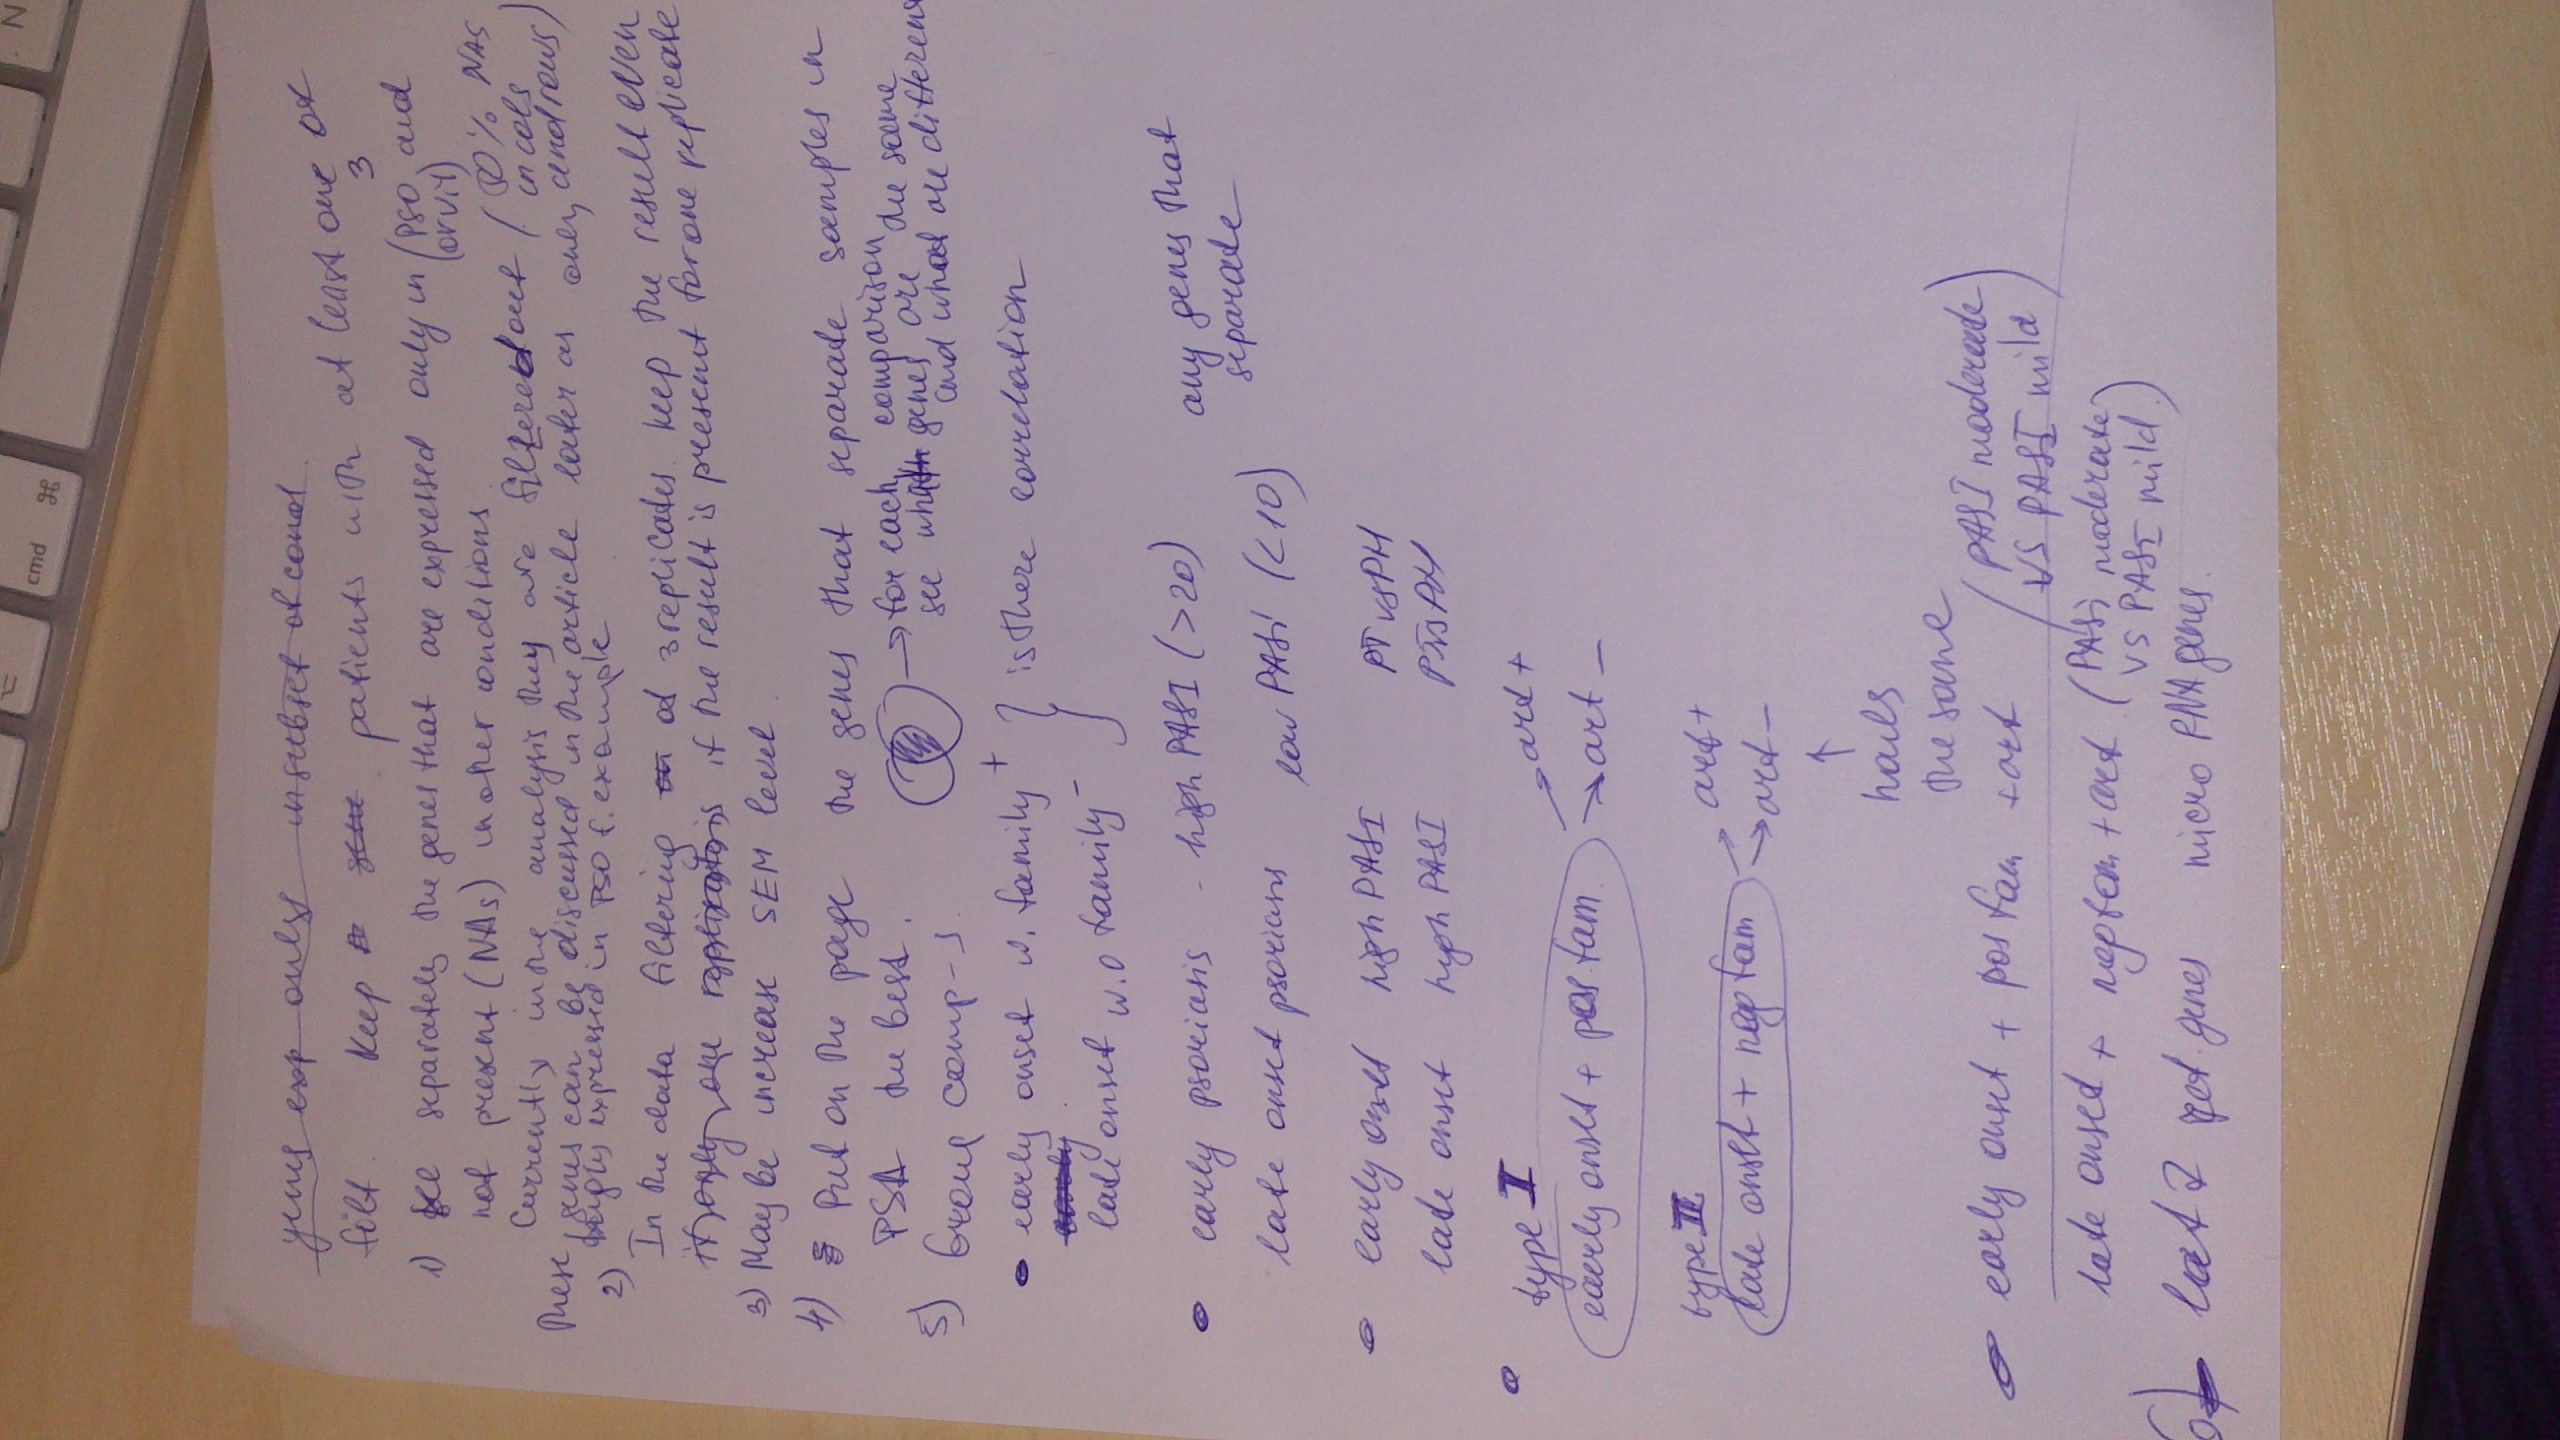 genes exp only in subset of cond
filt. Keep patients with at least one of 3
1) see separately the genes that are expressed only in (PSO and or vit)
not present (NAs) in other conditions
Currently in the analysis they are filtered out (80% NAs in cols and rows)
These genes can be discussed in the article later as only
highly expressed in PSO f. example
2) In the data filtering of 3 replicates keep the result even
if only one if the result is present for one replicate
3) May be increase SEM level
4) Put on the page the genes that separate samples in
PSA the best. → for each comparison
see what genes are the same
and what are different
5) Group comp-s.
• early onset w. family +
late onset w.o family -
} is there correlation
• early psoriasis - high PASI (>20)
late onset psoriasis low PASI (<10)
any genes that
separate
• early onset high PASI PT vs PH
late onset high PASI PT vs PH
• type I
early onset + pos fam. → art +
→ art -
type II
late onset + neg fam → art +
→ art -
↑
nails
the same
• early onset + pos fam + art (PASI moderate
vs PASI mild)
late onset + neg fam + art (PASI moderate
vs PASI mild.)
6) last 2 genes micro RNA genes.
cmd ⌘
⌥
N